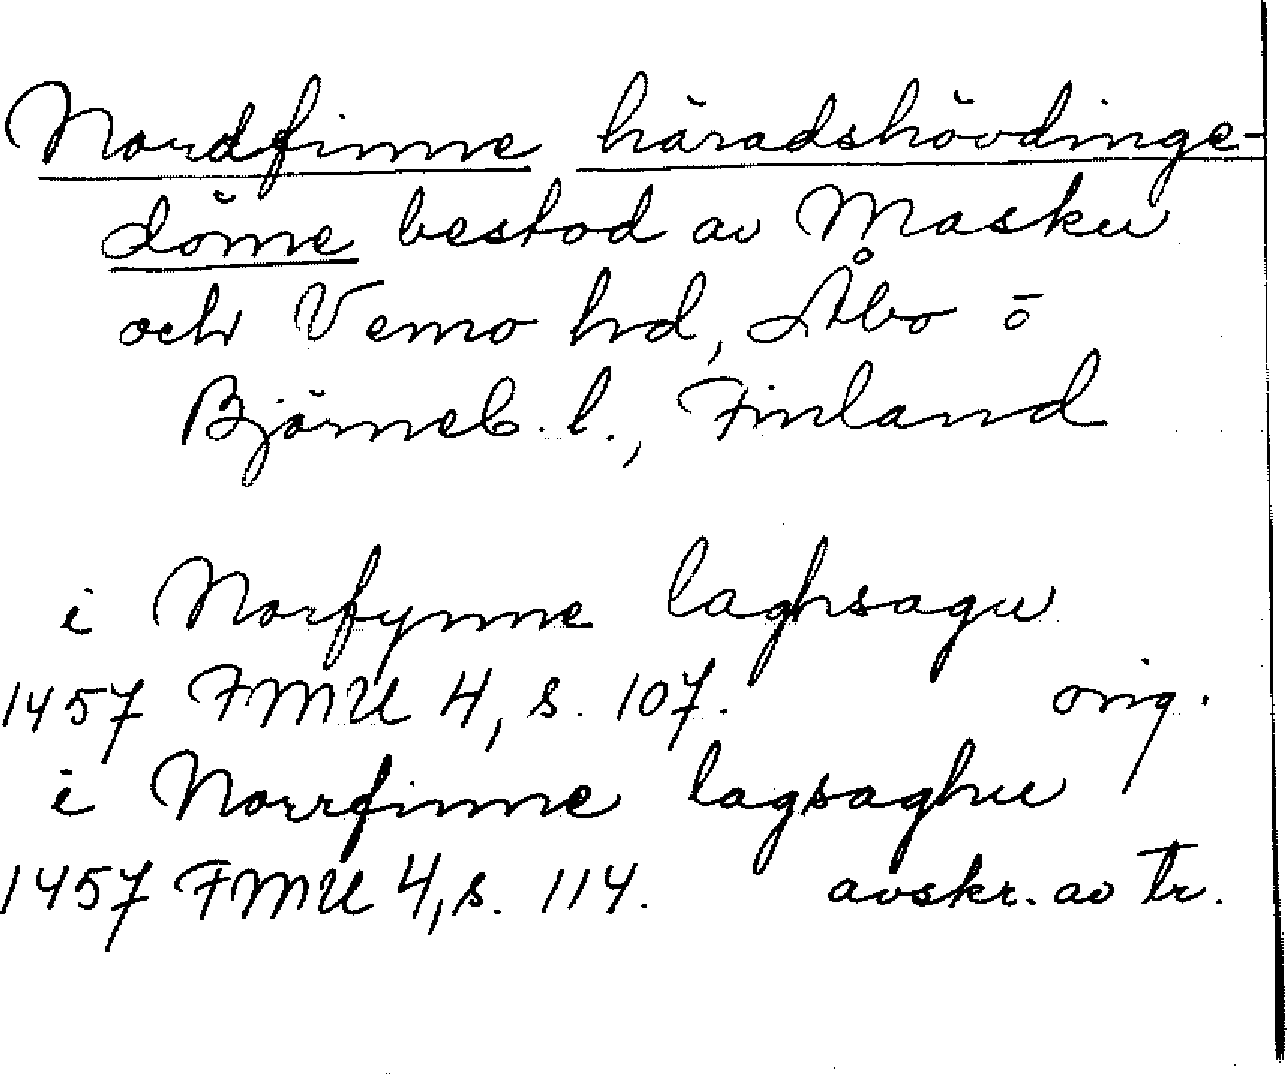 Nordfinne häradshövdinge-
döme bestod av Masku
och Vemo hd, Åbo o
Björneb. l., Finland
i Norfynne laghsagu
1457 FMU 4, s. 107. orig.
i Norrfinne lagsaghu
1457 FMU 4, s. 114. avskr. av tr.